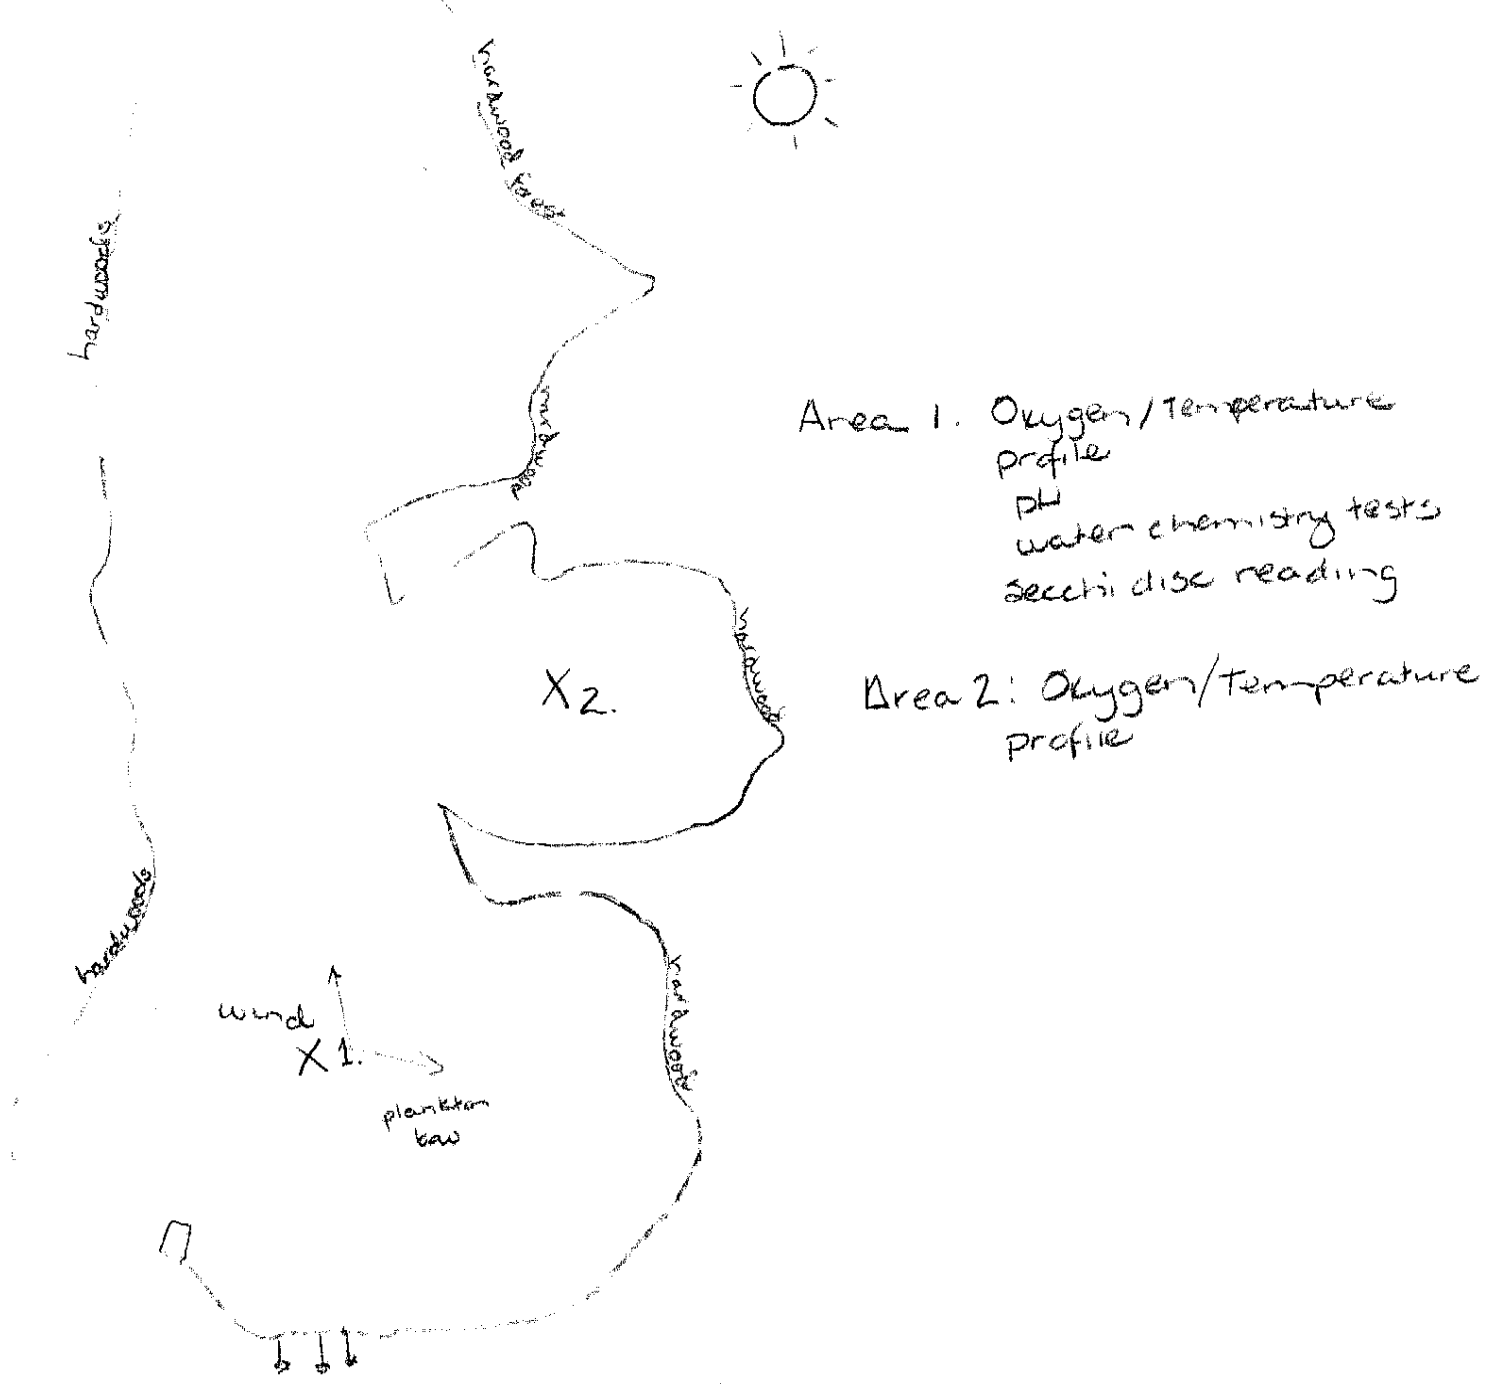 hardwood forest
hardwoods
hardwood
Area 1. Oxygen/Temperature
profile
pH
water chemistry tests
secchi disc reading
hardwood
X2.
Area 2: Oxygen/Temperature
profile
hardwoods
hardwood
wind
X 1.
plankton